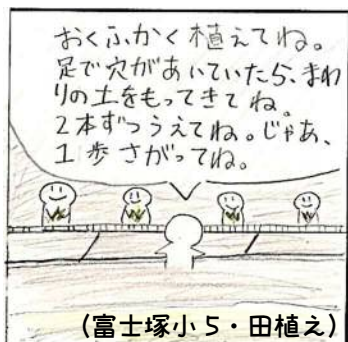 おくふかく植えてね。
足で穴があいていたら、まわ
りの土をもってきてね。
2本ずつうえてね。じゃあ、
1歩さがってね。
(富士塚小5・田植え)